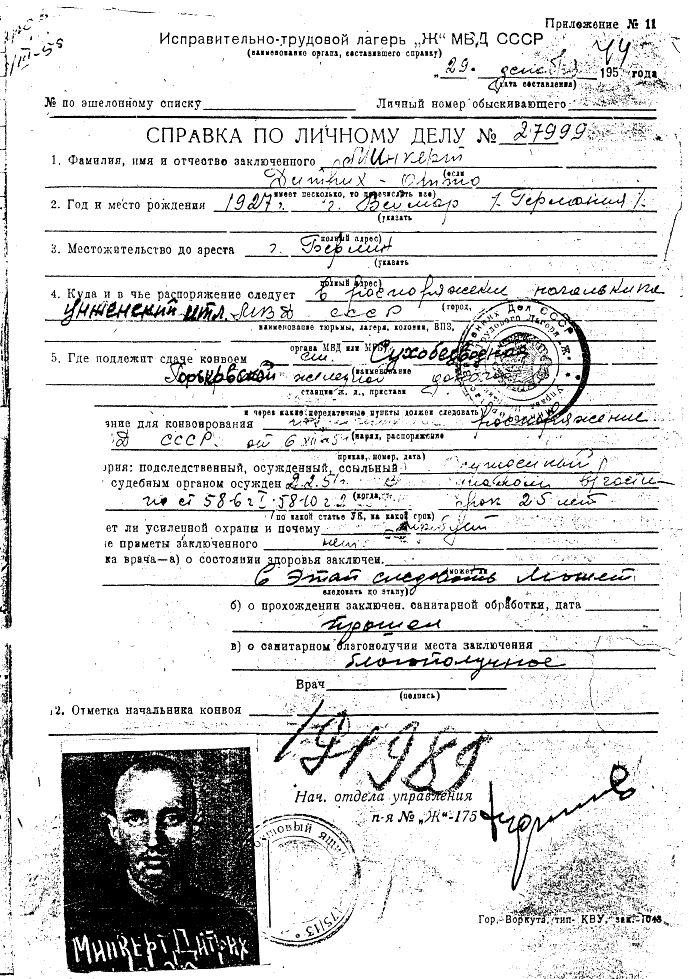 Приложение № 11
Исправительно-трудовой лагерь „Ж“ МВД СССР
(наименование органа, составившего справку)
„29“ 195 года
(дата составления)
№ по эшелонному списку Личный номер обыскивающего
СПРАВКА ПО ЛИЧНОМУ ДЕЛУ № 27999
1. Фамилия, имя и отчество заключенного Минкерт
Дитрих-Отто (если
имеет несколько, то перечислить все)
2. Год и место рождения 1927 г. г. Веймар / Германия /.
(указать
полный адрес)
3. Местожительство до ареста г. Берлин
(указать
полный адрес)
4. Куда и в чье распоряжение следует в распоряжение начальника
Унженский итл. МВД СССР (город,
наименование тюрьмы, лагеря, колонии, ВПЗ,
органа МВД или
5. Где подлежит сдаче конвоем ст. Сухобезводная
Горьковской железной дороги (наименование
станции ж. д., пристани
и через какие передаточные пункты должен следовать)
ние для конвоирования распоряжение
Д СССР. от 6 (наряд, распоряжение
приказ, номер, дата)
рия: подследственный, осужденный, ссыльный
судебным органом осужден
по ст 58-6 ч I. 58-10 ч 2 (когда, срок 25 лет
по какой статье УК, на какой срок)
ет ли усиленной охраны и почему
е приметы заключенного нет
ка врача—а) о состоянии здоровья заключен.
(может ли
В Этап следовать может
следовать по этапу)
б) о прохождении заключен. санитарной обработки, дата
прошел
в) о санитарном благополучии места заключения
благополучное
Врач
(подпись)
12. Отметка начальника конвоя
191989
Нач. отдела управления
п-я № „Ж“-175
Гор. Воркута, тип. КВУ, зак.
МИНКЕРТ ДИТРИХ